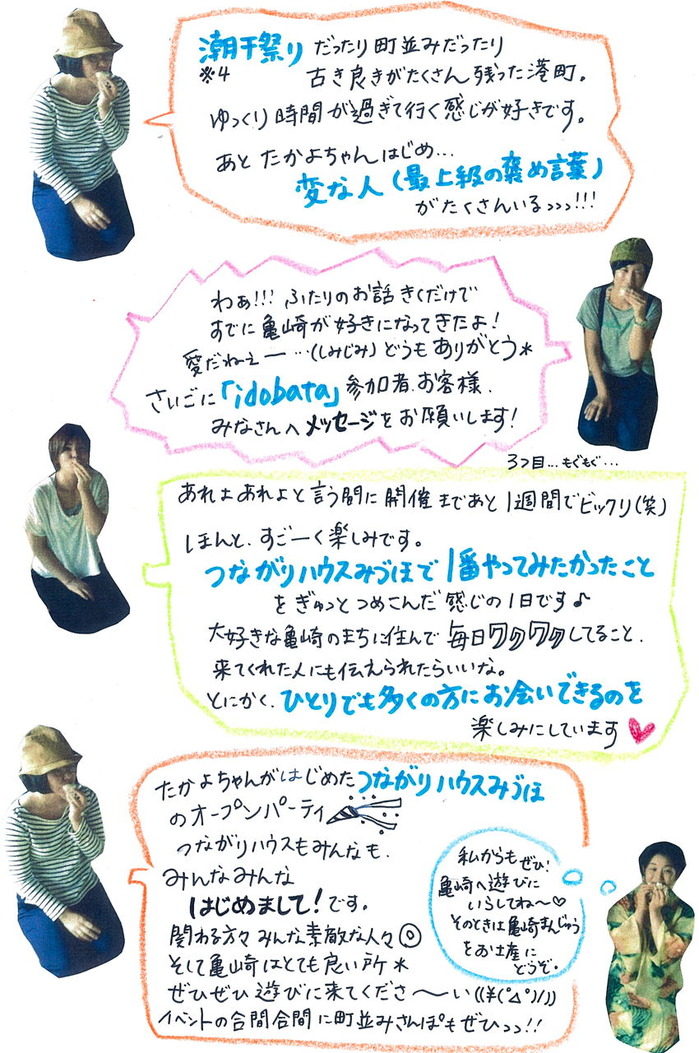 潮干祭り だったり町並みだったり
※4 古き良きがたくさん残った港町。
ゆっくり時間が過ぎて行く感じが好きです。
あと たかよちゃんはじめ…
変な人(最上級の褒め言葉)
がたくさんいるっっっ!!!
わぁ!!! ふたりのお話きくだけで
すでに亀崎が好きになってきたよ!
愛だねぇー…(しみじみ)どうもありがとう*
さいごに「idobata」参加者、お客様、
みなさんへメッセージをお願いします!
3つ目…もぐもぐ…
あれよあれよと言う間に開催まであと1週間でビックリ(笑)
ほんと、すごーく楽しみです。
つながりハウスみづほで1番やってみたかったこと
をぎゅっとつめこんだ感じの1日です♪
大好きな亀崎のまちに住んで毎日ワクワクしてること、
来てくれた人にも伝えられたらいいな。
とにかく、ひとりでも多くの方にお会いできるのを
楽しみにしています
たかよちゃんがはじめたつながりハウスみづほ
のオープンパーティ
つながりハウスもみんなも、
みんなみんな
はじめまして!です。
関わる方々みんな素敵な人々◎
そして亀崎はとても良い所*
ぜひぜひ遊びに来てくださ〜い((¥(°△°)/))
イベントの合間合間に町並みさんぽもぜひっっ!!
私からもぜひ!
亀崎へ遊びに
いらしてね〜♡
そのときは亀崎まんじゅう
をお土産に
どうぞ。